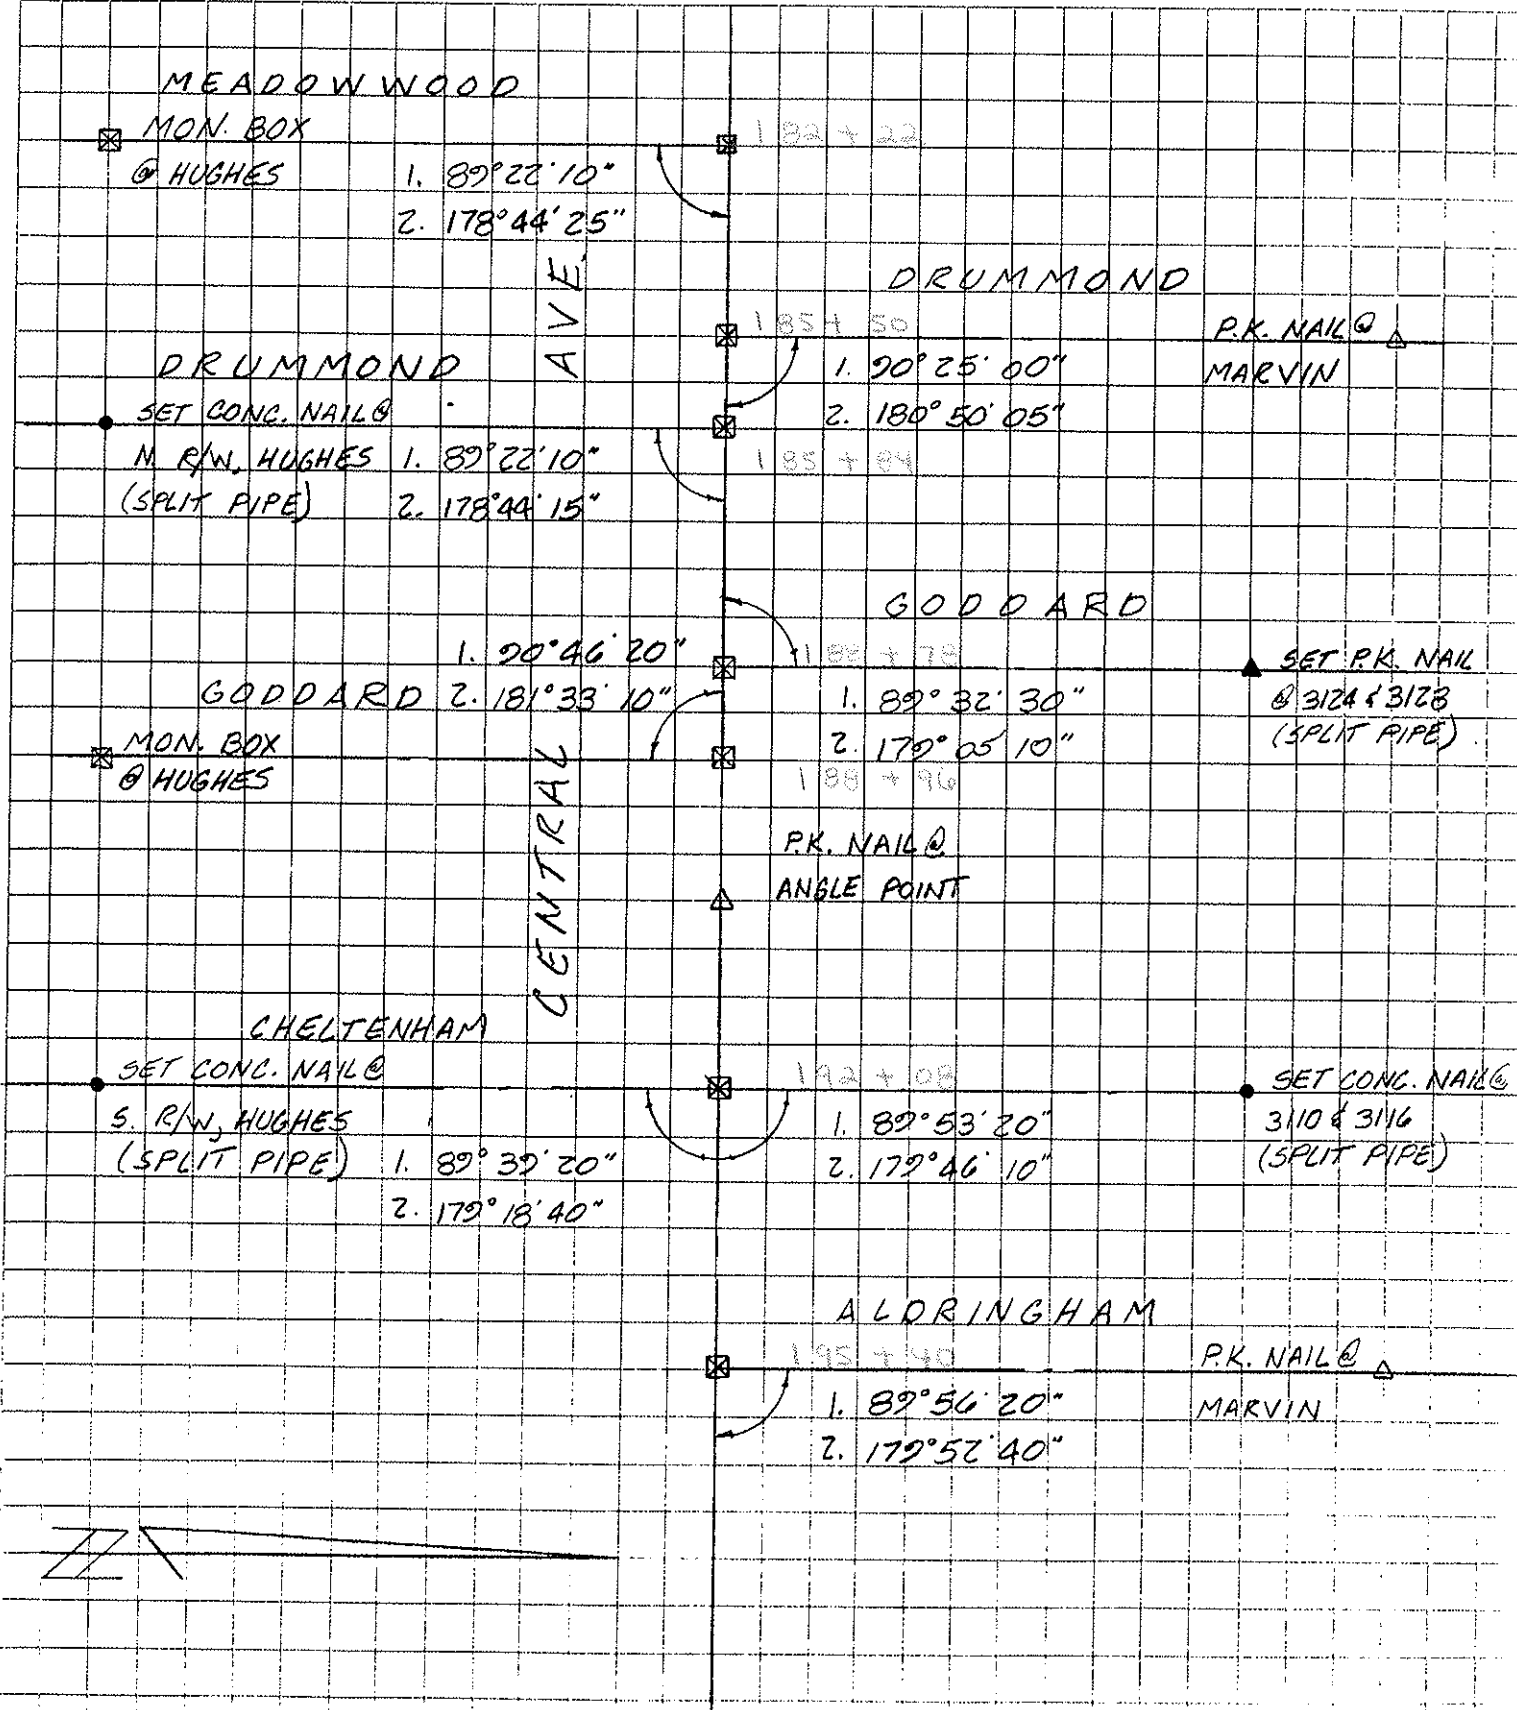 MEADOWWOOD
MON. BOX
@ HUGHES
1. 89°22'10"
2. 178°44'25"
182 + 22
DRUMMOND
185 + 50
P.K. NAIL @
MARVIN
1. 90°25'00"
2. 180°50'05"
DRUMMOND
SET CONC. NAIL @
N. R/W, HUGHES
(SPLIT PIPE)
1. 89°22'10"
2. 178°44'15"
185 + 84
CENTRAL AVE.
GODDARD
188 + 78
1. 89°32'30"
2. 179°05'10"
SET P.K. NAIL
@ 3124 & 3128
(SPLIT PIPE)
1. 90°46'20"
GODDARD 2. 181°33'10"
MON. BOX
@ HUGHES
188 + 96
P.K. NAIL @
ANGLE POINT
CHELTENHAM
SET CONC. NAIL @
S. R/W, HUGHES
(SPLIT PIPE)
1. 89°39'20"
2. 179°18'40"
192 + 08
1. 89°53'20"
2. 179°46'10"
SET CONC. NAIL @
3110 & 3116
(SPLIT PIPE)
ALDRINGHAM
195 + 40
1. 89°56'20"
2. 179°52'40"
P.K. NAIL @
MARVIN
N